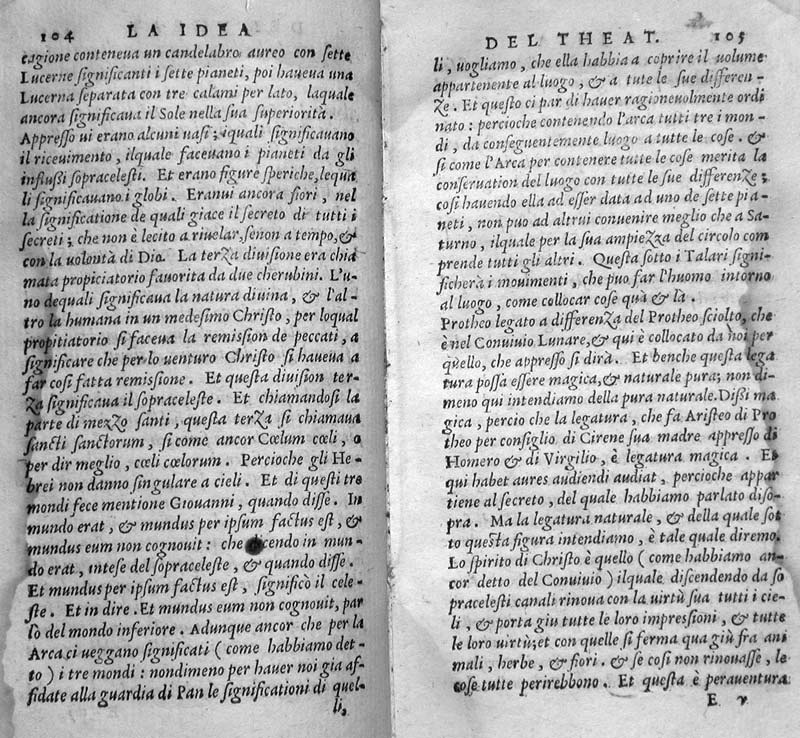 104 LA IDEA
cagione conteneua un candelabro aureo con sette
Lucerne significanti i sette pianeti, poi haueua una
Lucerna separata con tre calami per lato, laquale
ancora significaua il Sole nella sua superiorità.
Appresso ui erano alcuni uasi; iquali significauano
il riceuimento, ilquale faceuano i pianeti da gli
influssi sopracelesti. Et erano figure speriche, lequa
li significauano i globi. Eranui ancora fiori, nel
la significatione de quali giace il secreto di tutti i
secreti; che non è lecito a riuelar, senon a tempo, &
con la uolontà di Dio. La terza diuisione era chia
mata propiciatorio fauorita da due cherubini. L'u-
no dequali significaua la natura diuina, & l'al-
tro la humana in un medesimo Christo, per loqual
propitiatorio si faceua la remission de peccati, a
significare che per lo uenturo Christo si haueua a
far cosi fatta remissione. Et questa diuision ter-
za significaua il sopraceleste. Et chiamandosi la
parte di mezzo santi, questa terza si chiamaua
sancti sanctorum, si come ancor Cœlum cœli, o
per dir meglio, cœli cœlorum. Percioche gli He-
brei non danno singulare a cieli. Et di questi tre
mondi fece mentione Giouanni, quando disse. In
mundo erat, & mundus per ipsum factus est, &
mundus eum non cognouit: che dicendo in mun-
do erat, intese del sopraceleste, & quando disse.
Et mundus per ipsum factus est, significò il cele-
ste. Et in dire. Et mundus eum non cognouit, par
lò del mondo inferiore. Adunque ancor che per la
Arca ci ueggano significati (come habbiamo det-
to) i tre mondi: nondimeno per hauer noi gia af-
fidate alla guardia di Pan le significationi di quel-
li,
DEL THEAT. 105
li, uogliamo, che ella habbia a coprire il uolume
appartenente al luogo, & a tute le sue differen-
ze. Et questo ci par di hauer ragioneuolmente ordi
nato: percioche contenendo l'arca tutti tre i mon-
di, da conseguentemente luogo a tutte le cose. &
si come l'Arca per contenere tutte le cose merita la
conseruation del luogo con tutte le sue differenze;
cosi hauendo ella ad esser data ad uno de sette pia-
neti, non puo ad altrui conuenire meglio che a Sa-
turno, ilquale per la sua ampiezza del circolo com
prende tutti gli altri. Questa sotto i Talari signi-
ficherà i mouimenti, che puo far l'huomo intorno
al luogo, come collocar cose quà & là.
Protheo legato a differenza del Protheo sciolto, che
è nel Conuiuio Lunare, & qui è collocato da noi per
quello, che appresso si dirà. Et benche questa lega
tura possa essere magica, & naturale pura; non di-
meno qui intendiamo della pura naturale. Dissi ma
gica, percio che la legatura, che fa Aristeo di Pro
theo per consiglio di Cirene sua madre appresso di
Homero & di Virgilio, è legatura magica. Et
qui habet aures audiendi audiat, percioche appar
tiene al secreto, del quale habbiamo parlato diso-
pra. Ma la legatura naturale, & della quale sot
to questa figura intendiamo, è tale quale diremo.
Lo spirito di Christo è quello (come habbiamo an-
cor detto del Conuiuio) ilquale discendendo da so
pracelesti canali rinoua con la uirtù sua tutti i cie-
li, & porta giu tutte le loro impressioni, & tutte
le loro uirtù; et con quelle si ferma qua giù fra ani
mali, herbe, & fiori. & se cosi non rinouasse, le
cose tutte perirebbono. Et questa è perauentura
E v